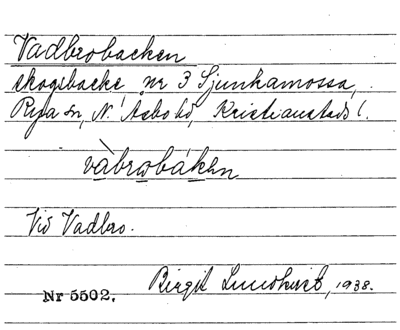 Vadbrobacken
skogsbacke nr 3 Sjunkamossa,
Rya sn, N. Åsbo hd, Kristianstads l.
vàbrobáken
Vid Vadbro.
Birgit Lundkvist, 1938.
Nr 5502.